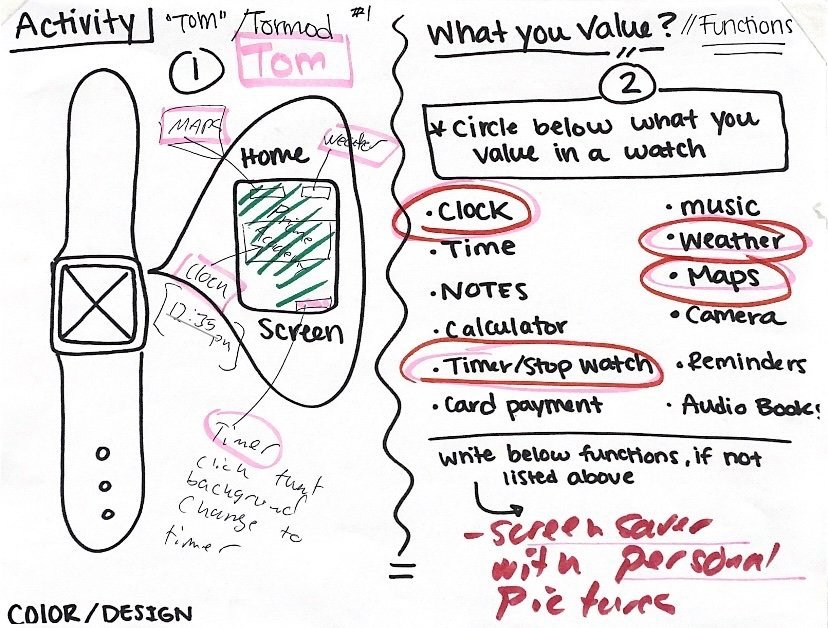 Activity "Tom" / Tormod #1
Tom
1
MAPS
Weather
Home
Prime
Academy
Clock
[12:35
pm]
Screen
Timer
click that
background
change to
timer
COLOR/DESIGN
What you value? // Functions
2
* Circle below what you
value in a watch
• Clock
• Time
• NOTES
• Calculator
• Timer/Stop watch
• Card payment
• music
• Weather
• Maps
• Camera
• Reminders
• Audio Books
write below functions, if not
listed above
- screen saver
with personal
Pictures